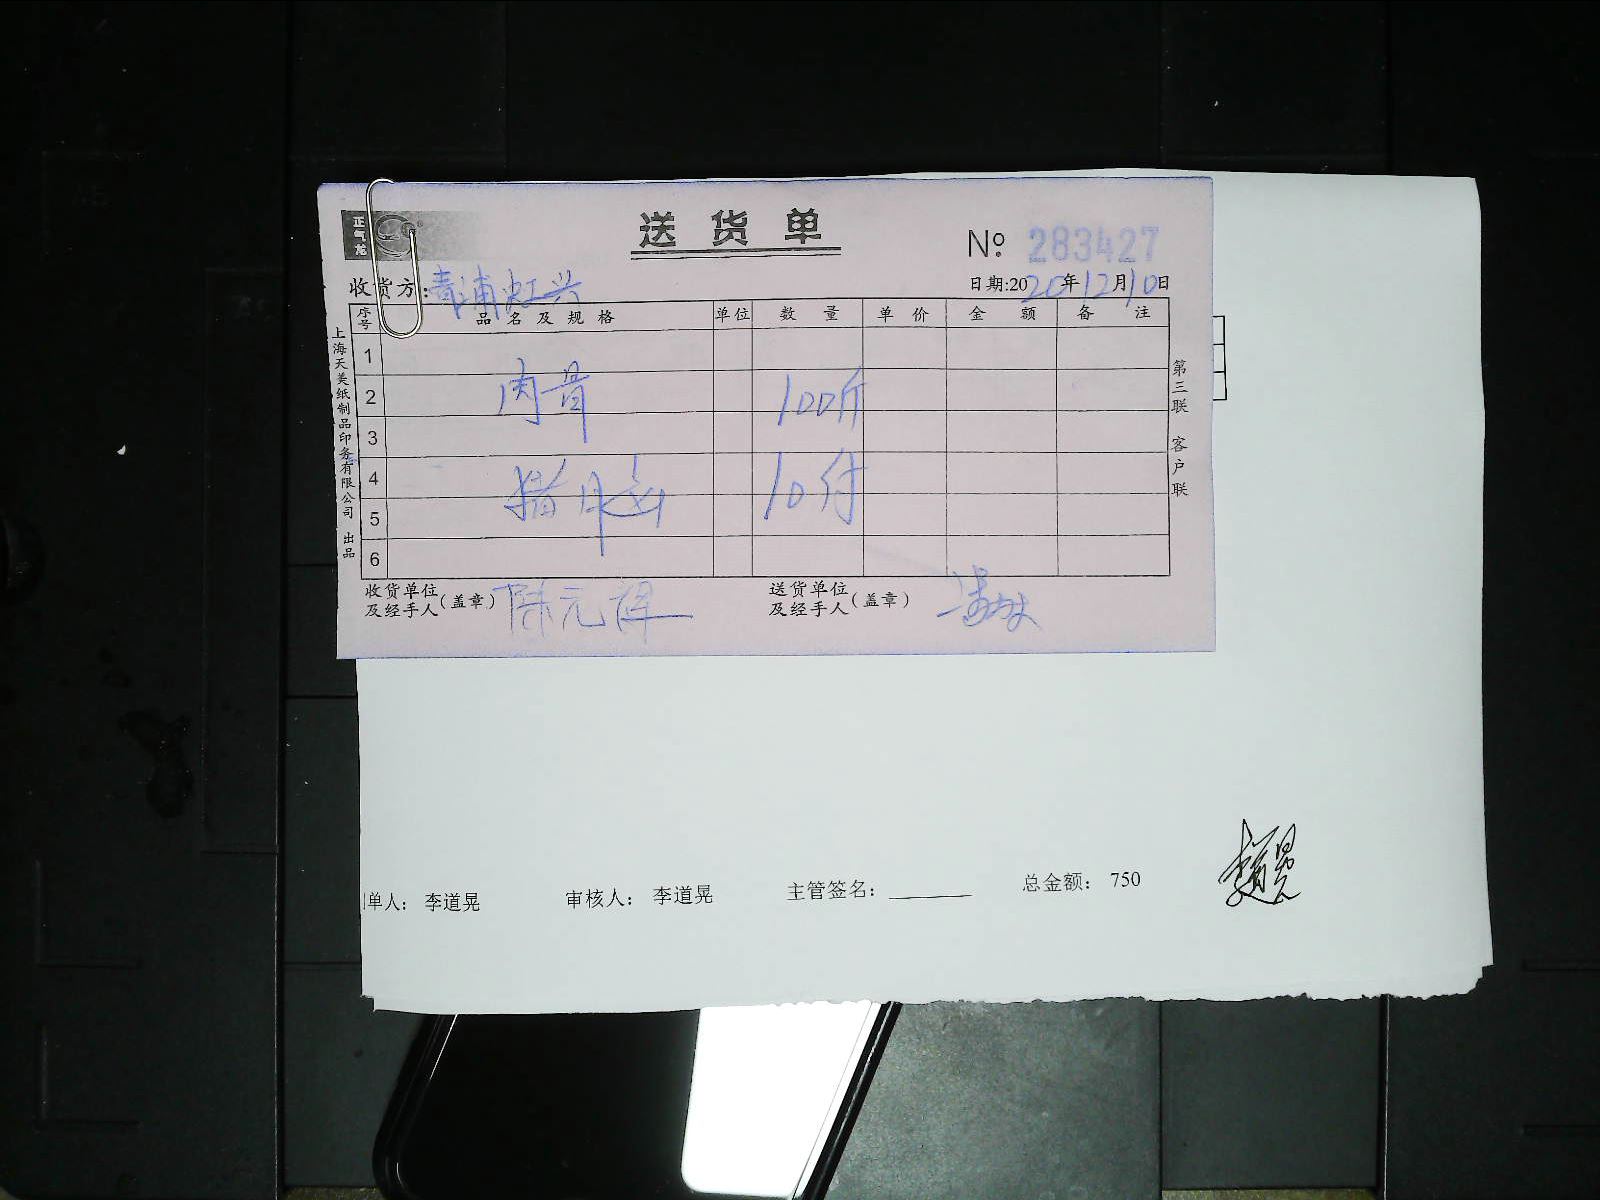 正气龙
送货单
№ 283427
收货方:青浦虹兴
日期:2020年12月10日
序号 品名及规格 单位 数量 单价 金额 备注
1
2 肉骨 100斤
3
4 猪 10付
5
6
收货单位及经手人(盖章) 陈元
送货单位及经手人(盖章)
上海天美纸制品印务有限公司 出品
第三联 客户联
单人: 李道晃 审核人: 李道晃 主管签名: 总金额: 750